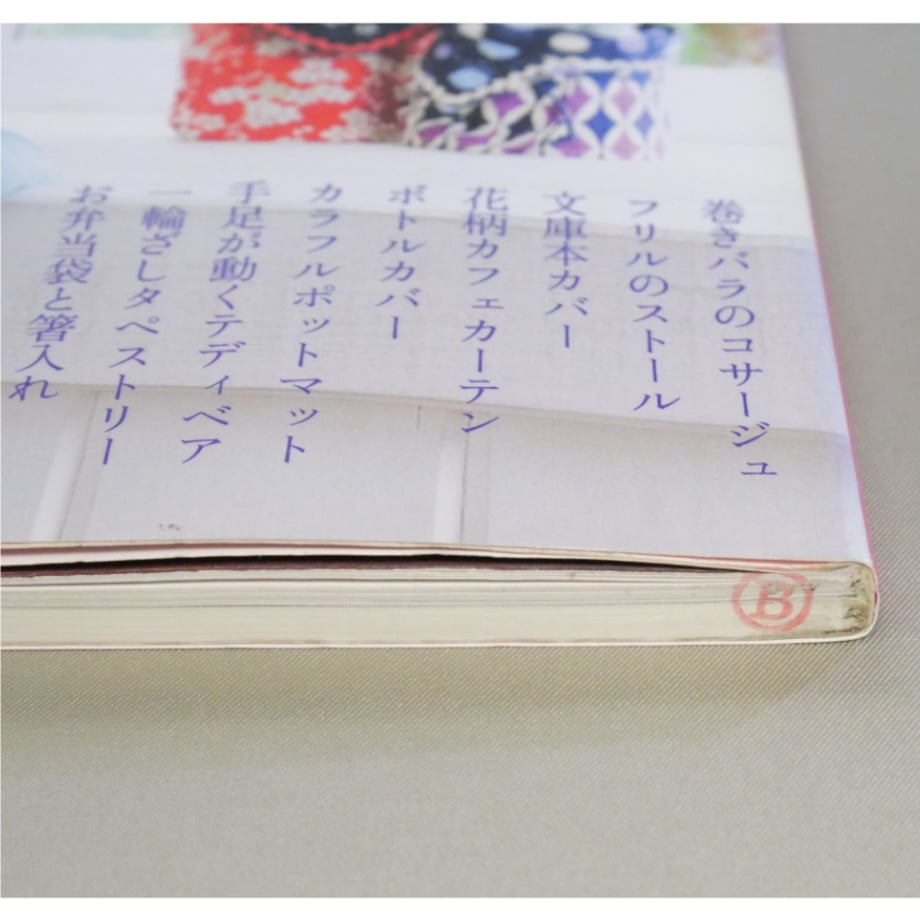 巻きバラのコサージュ
フリルのストール
文庫本カバー
花柄カフェカーテン
ボトルカバー
カラフルポットマット
手足が動くテディベア
一輪ざしタペストリー
お弁当袋と箸入れ
B